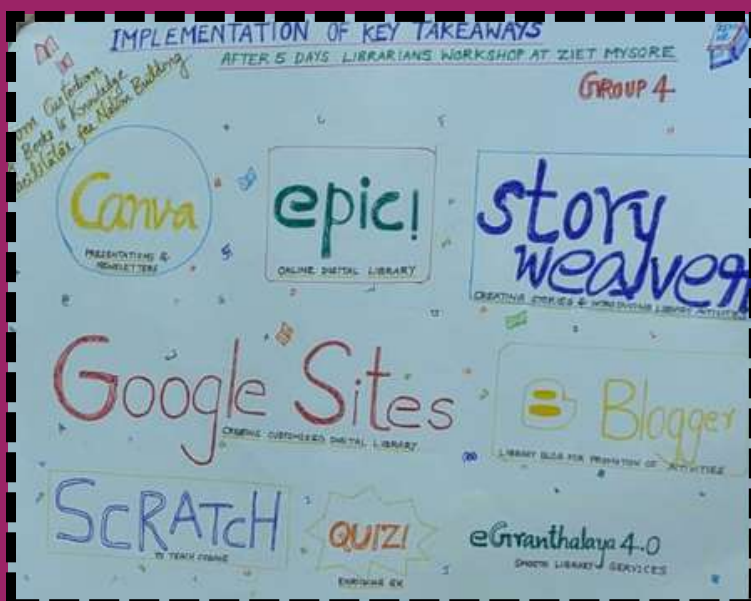 IMPLEMENTATION OF KEY TAKEAWAYS
AFTER 5 DAYS LIBRARIANS WORKSHOP AT ZIET MYSORE
GROUP 4
Custodian
Books to Knowledge
Facilitator for Nation Building
Canva
PRESENTATIONS &
NEWSLETTERS
epic!
ONLINE DIGITAL LIBRARY
story
weaver
CREATING STORIES & INTRODUCING LIBRARY ACTIVITIES
Google Sites
CREATING CUSTOMIZED DIGITAL LIBRARY
Blogger
LIBRARY BLOG FOR PROMOTION OF ACTIVITIES
SCRATCH
TO TEACH CODING
QUIZ!
ENRICHING GK
eGranthalaya 4.0
SMOOTH LIBRARY SERVICES